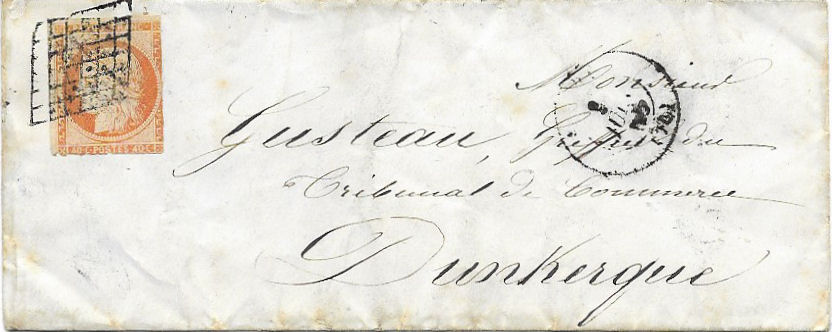 40 C. POSTES 40 C.
Monsieur
Gusteau, Greffier du
Tribunal de Commerce
Dunkerque